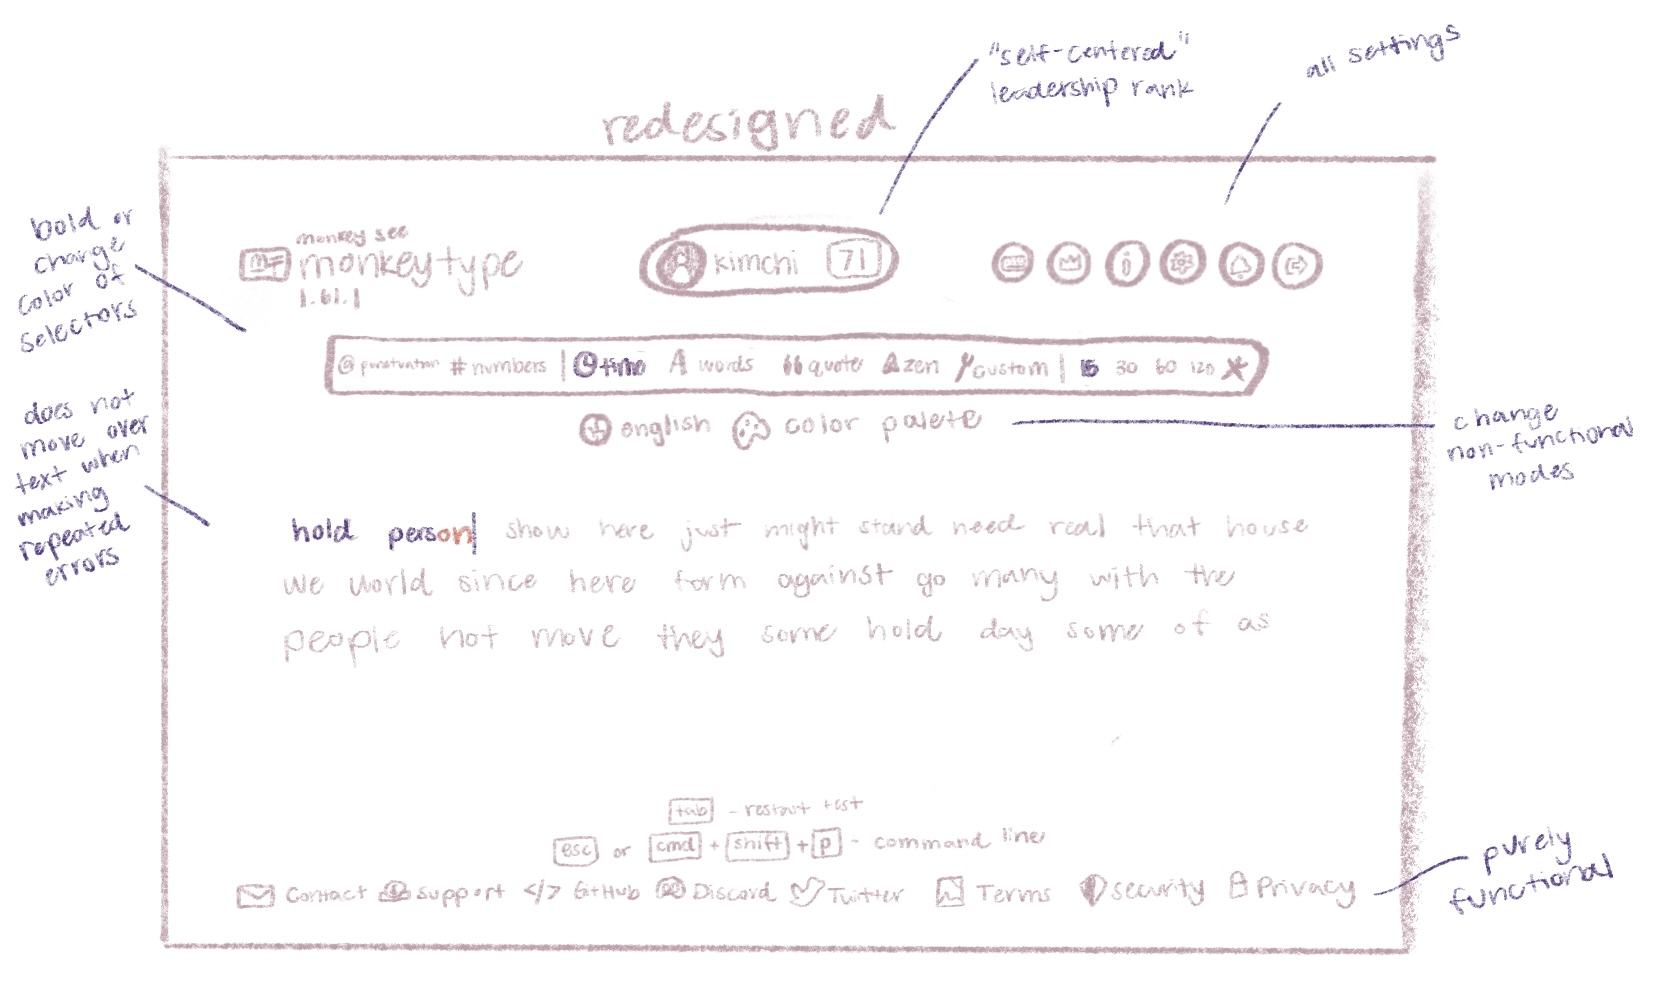 "self-centered"
leadership rank
all settings
redesigned
bold or
change
color of
selectors
monkey see
monkeytype
1.61.1
kimchi 71
@ punctuation # numbers | time A words quote zen custom | 15 30 60 120
english color palette
does not
move over
text when
making
repeated
errors
change
non-functional
modes
hold person show here just might stand need real that house
we world since here form against go many with the
people not move they some hold day some of as
tab - restart test
esc or cmd + shift + p - command line
Contact support </> GitHub Discord Twitter Terms security Privacy
purely
functional